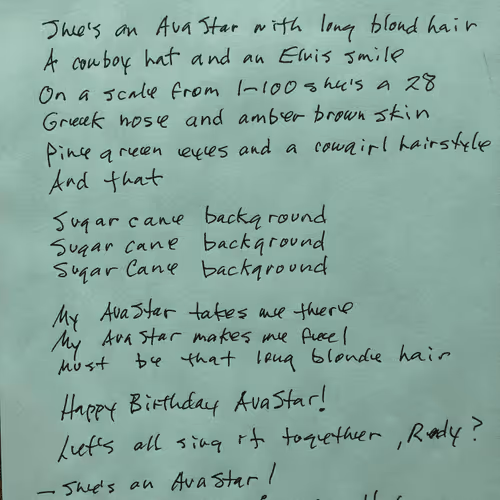 She's an Ava Star with long blond hair
A cowboy hat and an Elvis smile
On a scale from 1-100 she's a 28
Greek nose and amber brown skin
Pine green eyes and a cowgirl hairstyle
And that
Sugar cane background
Sugar cane background
Sugar Cane background
My AvaStar takes me there
My Ava Star makes me feel
Must be that long blonde hair
Happy Birthday AvaStar!
Let's all sing it together, Ready?
- She's an AvaStar!